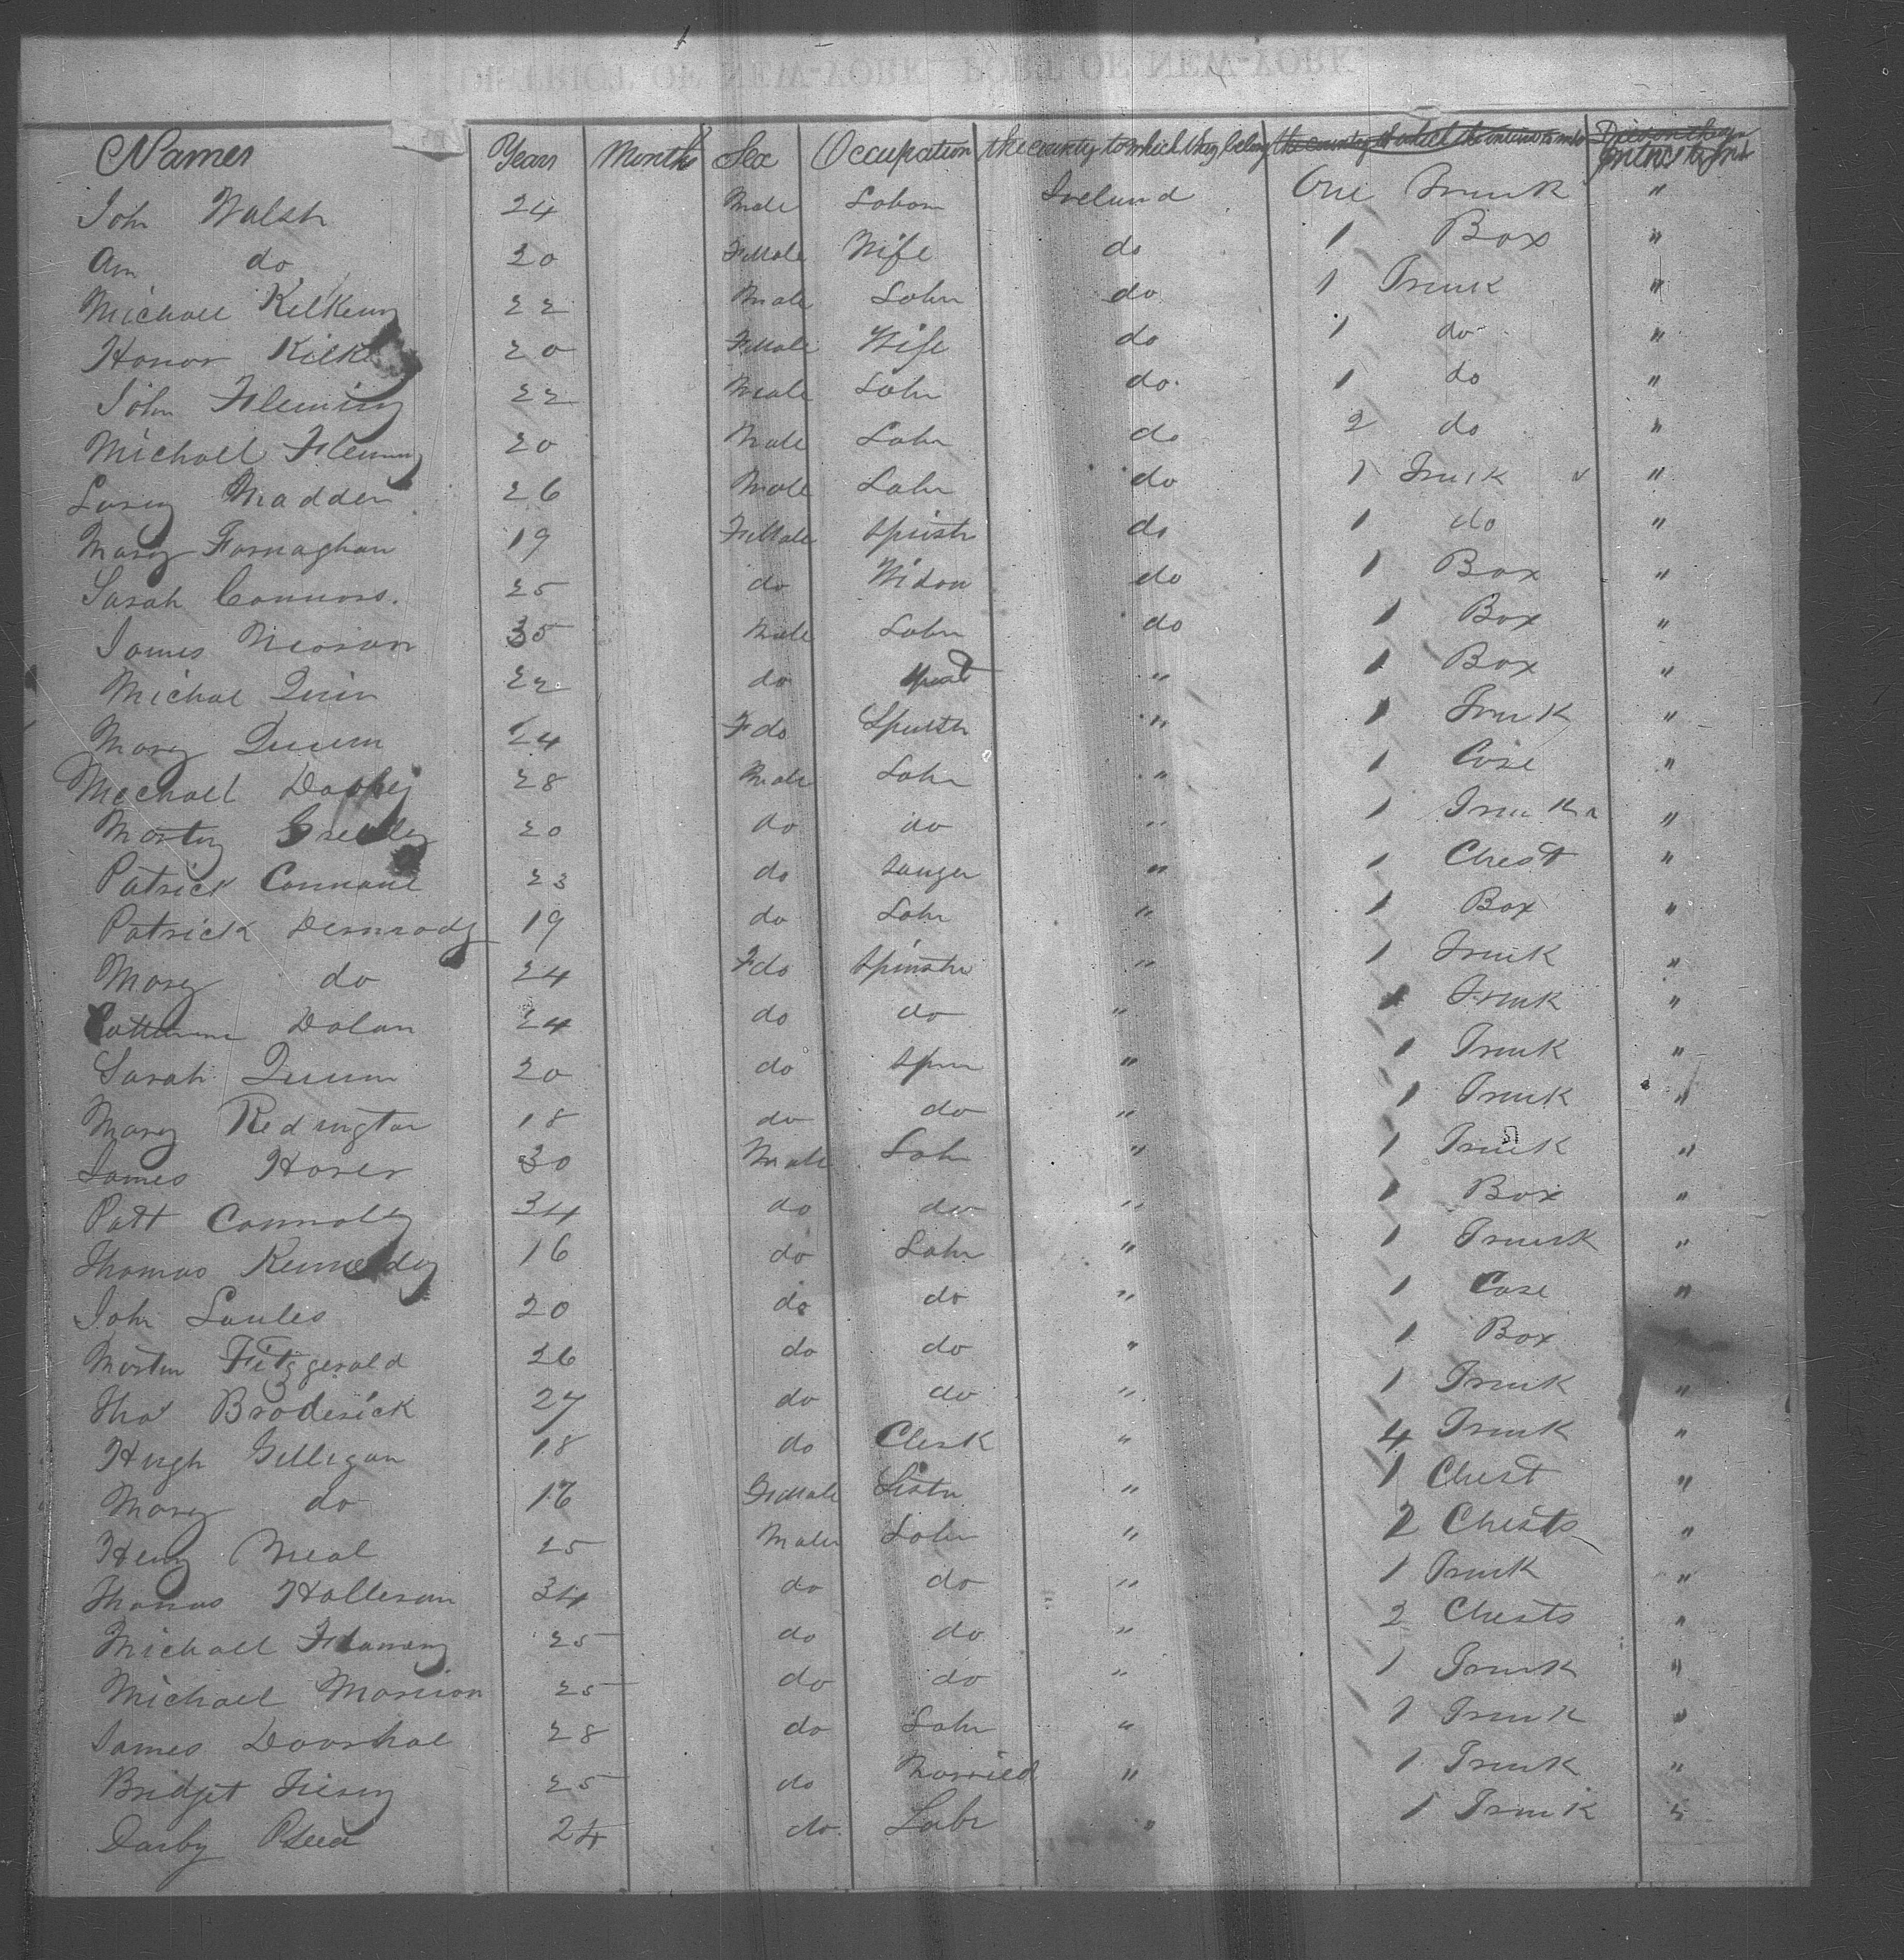 Names Years Month Sex Occupation the county to which they belong
John Walsh 24 Male Labom Ireland One Trunk "
Ann do 20 Female Wife do 1 Box "
Michael Kilkenny 22 Male Labr do 1 Trunk "
Honor Kilk 20 Female Wife do 1 do "
John Fleming 22 Male Labr do 1 do "
Michael Fleming 20 Male Labr do 2 do "
Madden 26 Male Labr do 1 Trunk "
Mary Fornaghan 19 Female Spinstr do 1 do "
Sarah Connors. 25 do Widow do 1 Box "
James 35 Male Labr do 1 Box "
Michal Quin 22 do " 1 Box "
Mary Quinn 24 F do Spinstr " 1 Trunk "
Michael 28 Male Labr " 1 Case "
20 do do " 1 Trunk "
Patrick Connane 23 do " 1 Chest "
Patrick Dermody 19 do Labr " 1 Box "
Mary do 24 F do Spinstr " 1 Trunk "
Catherine Dolan 24 do do " 1 Trunk "
Sarah Quinn 20 do Spin " 1 Trunk "
Mary Redington 18 do do " 1 Trunk "
James 30 Male Labr " 1 Trunk "
Patt Connoley 34 do do " 1 Box "
Thomas Kennedy 16 do Labr " 1 Trunk "
John 20 do do " 1 Case "
Martin Fitzgerald 26 do do " 1 Box "
Thos Broderick 27 do do " 1 Trunk "
Hugh Gilligan 18 do Clerk " 4 Trunk "
Mary do 16 Female Sistr " 1 Chest "
Henry Neal 25 Male Labr " 2 Chests "
Thomas Holleran 34 do do " 1 Trunk "
Michael 25 do do " 2 Chests "
Michael 25 do do " 1 Trunk "
James 28 do Labr " 1 Trunk "
Bridget 25 do Married " 1 Trunk "
Darby 24 do Labr " 1 Trunk "